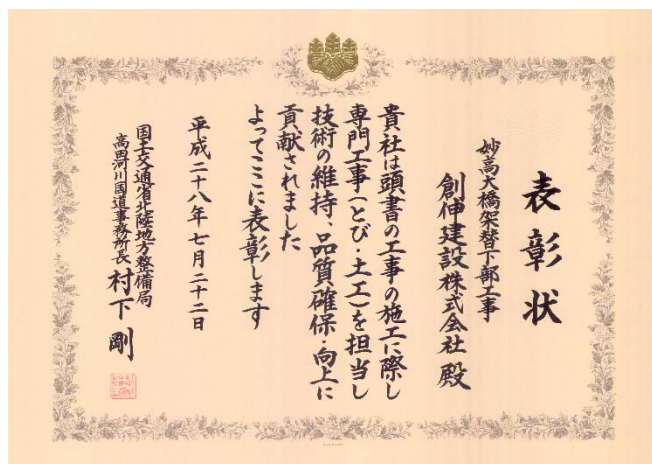 表彰状
妙高大橋架替下部工事
創伸建設株式会社殿
貴社は頭書の工事の施工に際し
専門工事(とび・土工)を担当し
技術の維持、品質確保・向上に
貢献されました
よってここに表彰します
平成二十八年七月二十二日
国土交通省北陸地方整備局
高田河川国道事務所長 村下剛